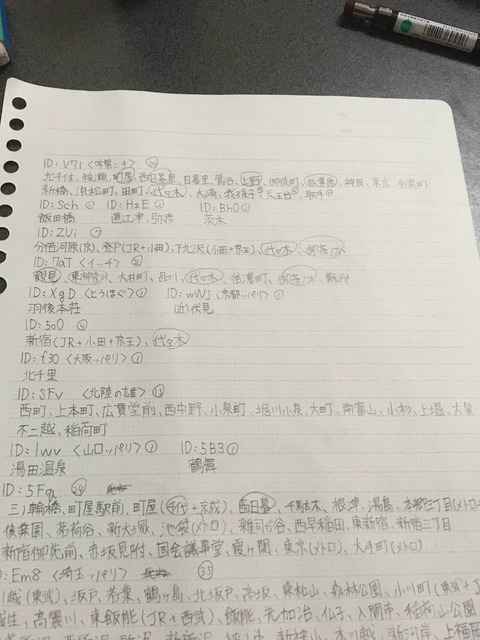 ID:V71
北千住、綾瀬、町屋、西日暮里、日暮里、鶯谷、上野、御徒町、秋葉原、神田、東京、有楽町
新橋、浜松町、田町、代々木、大崎、我孫子、天王台、取手
ID:Sch ① ID:HzE ② ID:BhO ①
飯田橋 直江津、弥彦 茨木
ID:ZVi
分倍河原(京)、登戸(JR+小田)、下北沢(小田+京王)、代々木、御茶ノ水
ID:7aT <イッチ> ⑧
鶴見、大井町、品川、代々木、信濃町、御茶ノ水
ID:XgD <とうほぐ> ① ID:wWj <京都ッパリ> ①
羽後本荘 (近)伏見
ID:500 ④
新宿(JR+小田+京王)、代々木
ID:t30 <大阪ッパリ> ①
北千里
ID:SFv <北陸の雄> ⑬
西町、上本町、広貫堂前、西中野、小泉町、堀川小泉、大町、南富山、小杉、上堀、大泉
不二越、稲荷町
ID:1wv <山口ッパリ> ① ID:5B3 ①
湯田温泉 鶴舞
ID:5Fq
三ノ輪橋、町屋駅前、町屋(千代+京成)、西日暮、千駄木、根津、湯島、本郷三丁目(メトロ)
後楽園、茗荷谷、新大塚、池袋(メトロ)、雑司が谷、西早稲田、東新宿、新宿三丁目
新宿御苑前、赤坂見附、国会議事堂、霞ヶ関、東京(メトロ)、大手町(メトロ)
ID:Em8 <埼玉ッパリ> ㉟
越(東武)、坂戸、若葉、鶴ヶ島、北坂戸、高坂、東松山、森林公園、小川町(東武+J
生、高麗川、東飯能(JR+西武)、飯能、元加治、仏子、入間市、稲荷山公園